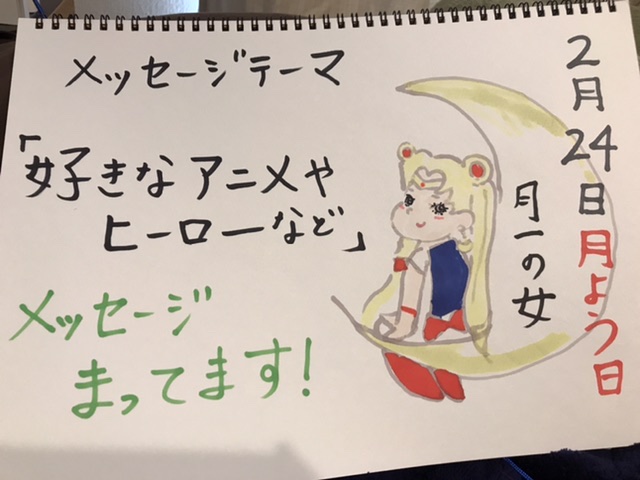 メッセージテーマ
「好きなアニメや
ヒーローなど」
メッセージ
まってます!
2月24日月よう日
月一の女